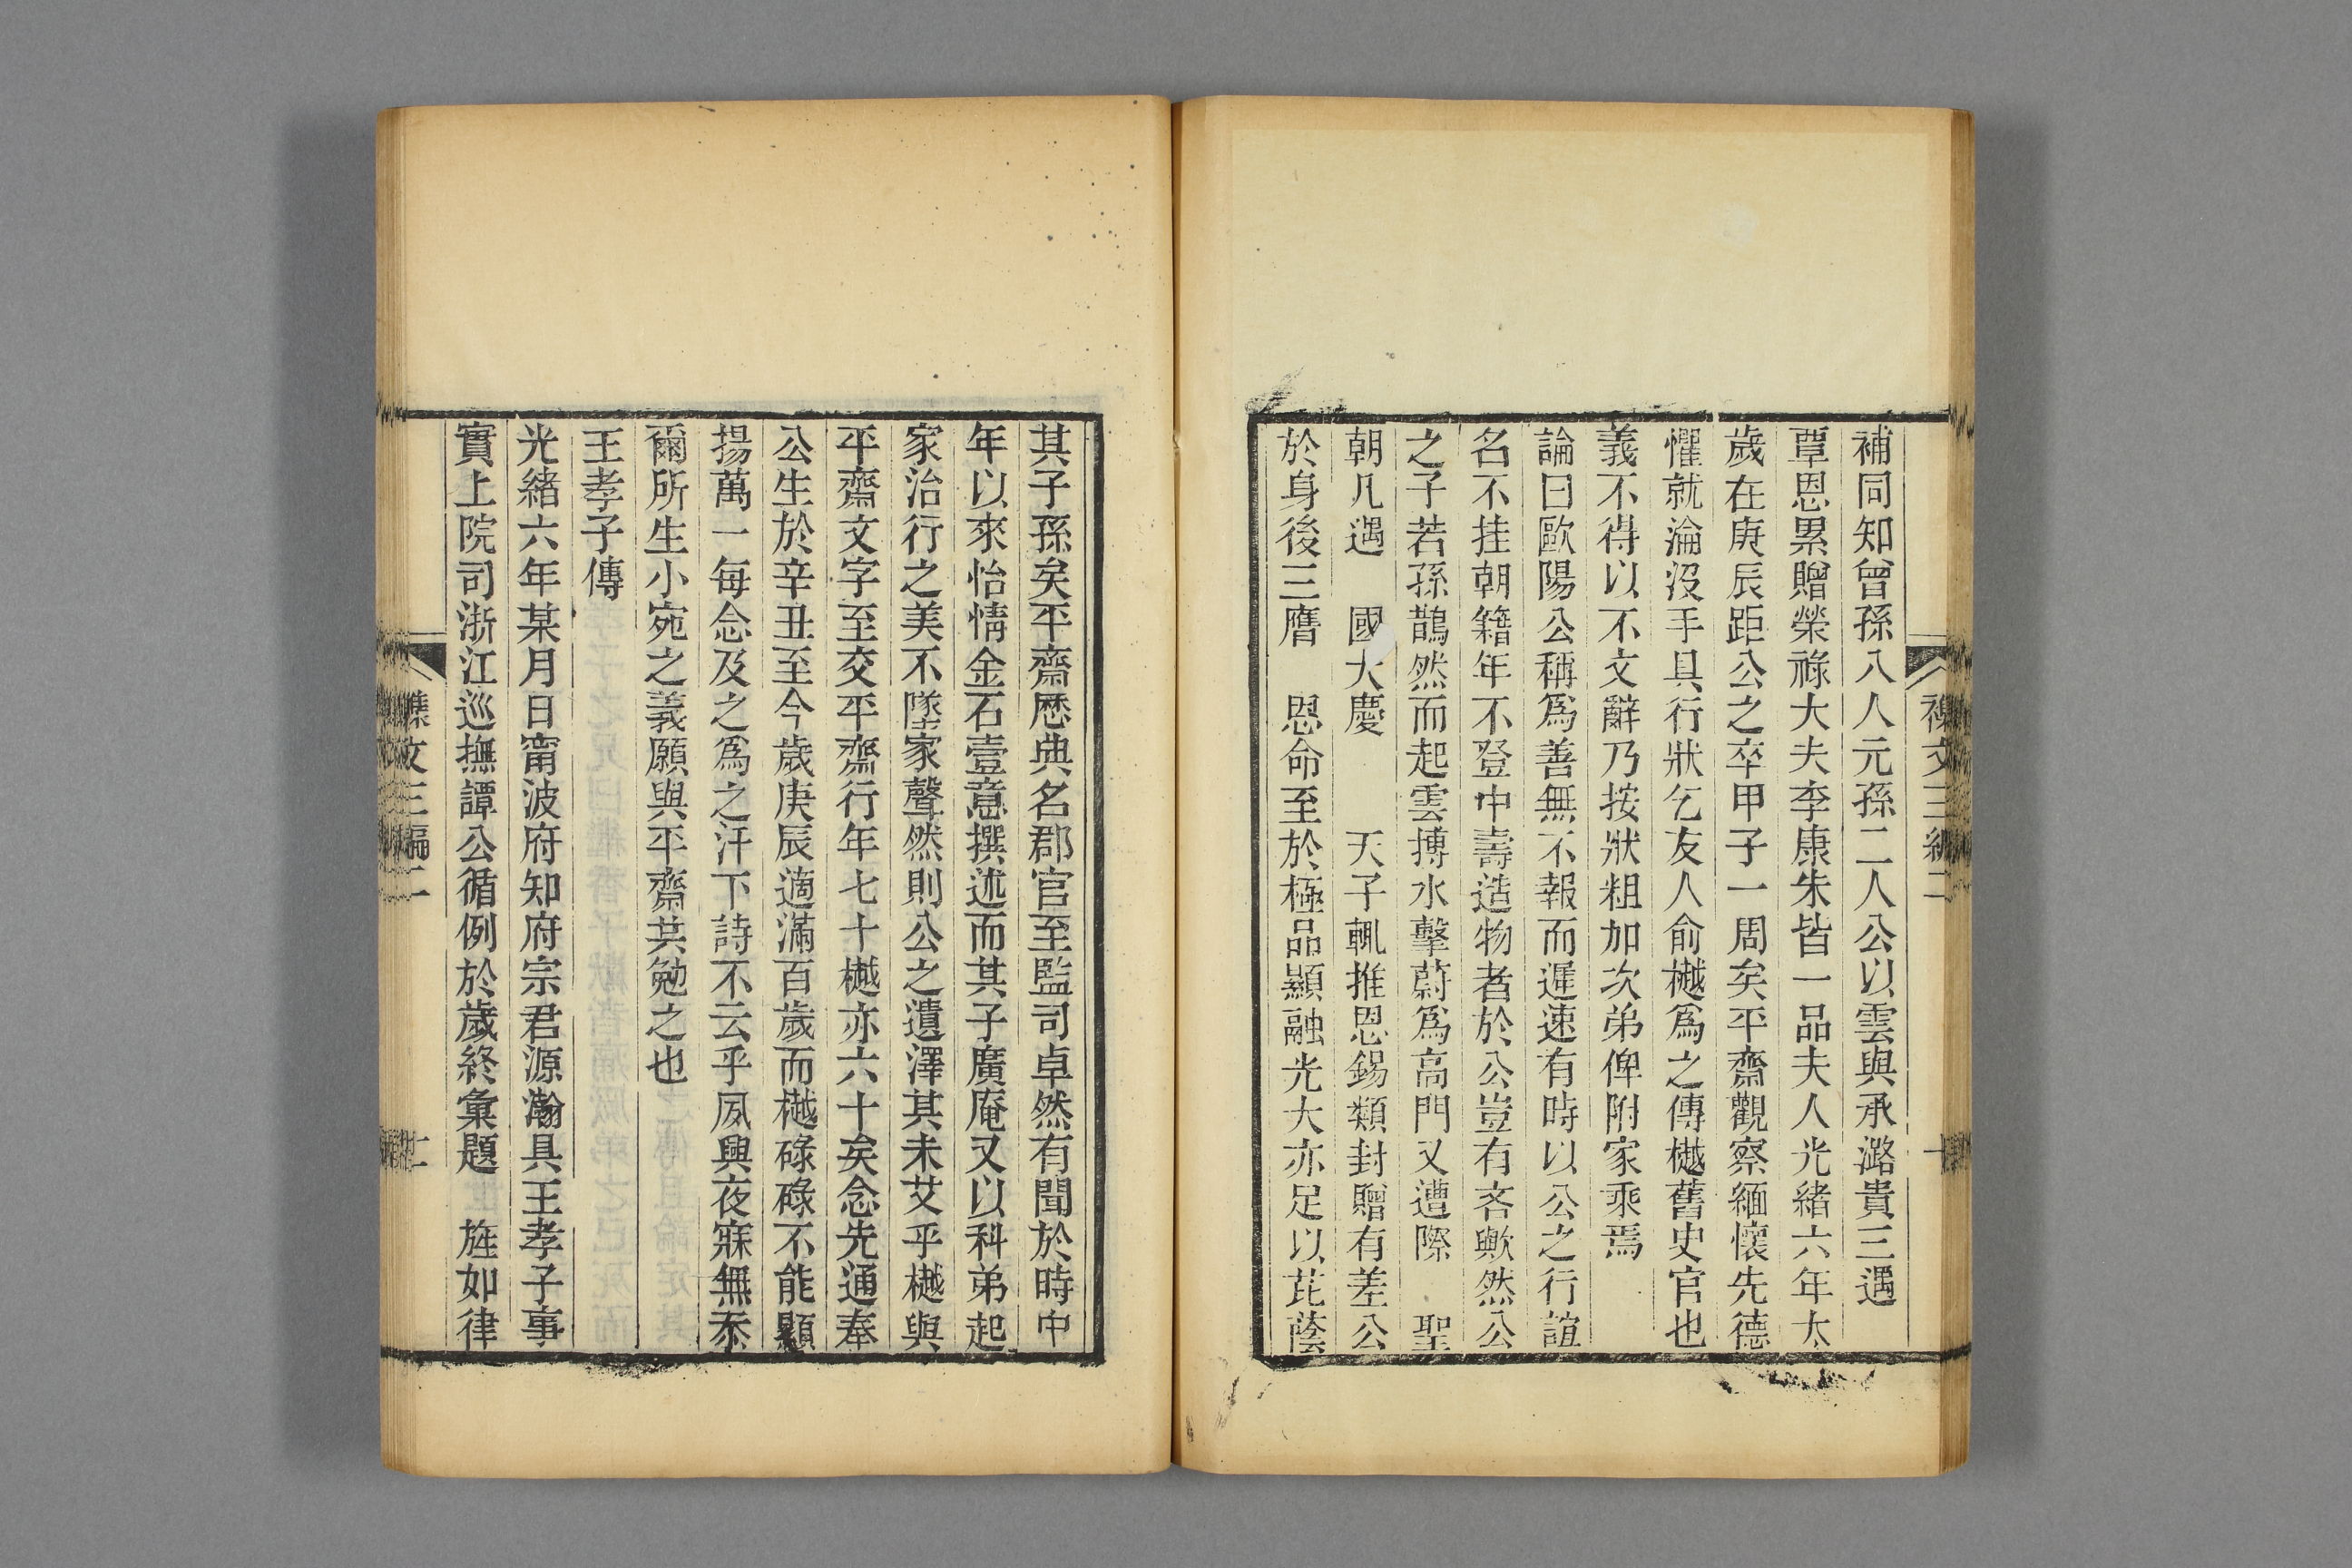 補同知曾孫八人元孫二人公以雲與承潞貴三遇
覃恩累贈榮祿大夫李康朱皆一品夫人光緒六年太
歲在庚辰距公之卒甲子一周矣平齋觀察緬懷先德
懼就淪沒手具行狀乞友人俞樾爲之傳樾舊史官也
義不得以不文辭乃按狀粗加次弟俾附家乘焉
論曰歐陽公稱爲善無不報而遲速有時以公之行誼
名不挂朝籍年不登中壽造物者於公豈有吝歟然公
之子若孫鵲然而起雲摶水擊蔚爲高門又遭際　聖
朝凡遇　國大慶　　天子輒推恩錫類封贈有差公
於身後三膺　恩命至於極品顯融光大亦足以芘蔭
其子孫矣平齋歷典名郡官至監司卓然有聞於時中
年以來怡情金石壹意撰述而其子廣庵又以科弟起
家治行之美不墜家聲然則公之遺澤其未艾乎樾與
平齋文字至交平齋行年七十樾亦六十矣念先通奉
公生於辛丑至今歲庚辰適滿百歲而樾碌碌不能顯
揚萬一每念及之爲之汗下詩不云乎夙興夜寐無忝
爾所生小宛之義願與平齋共勉之也
王孝子傳
光緒六年某月日甯波府知府宗君源瀚具王孝子事
實上院司浙江巡撫譚公循例於歲終彙題　旌如律
襍文三編二
十
襍文三編二